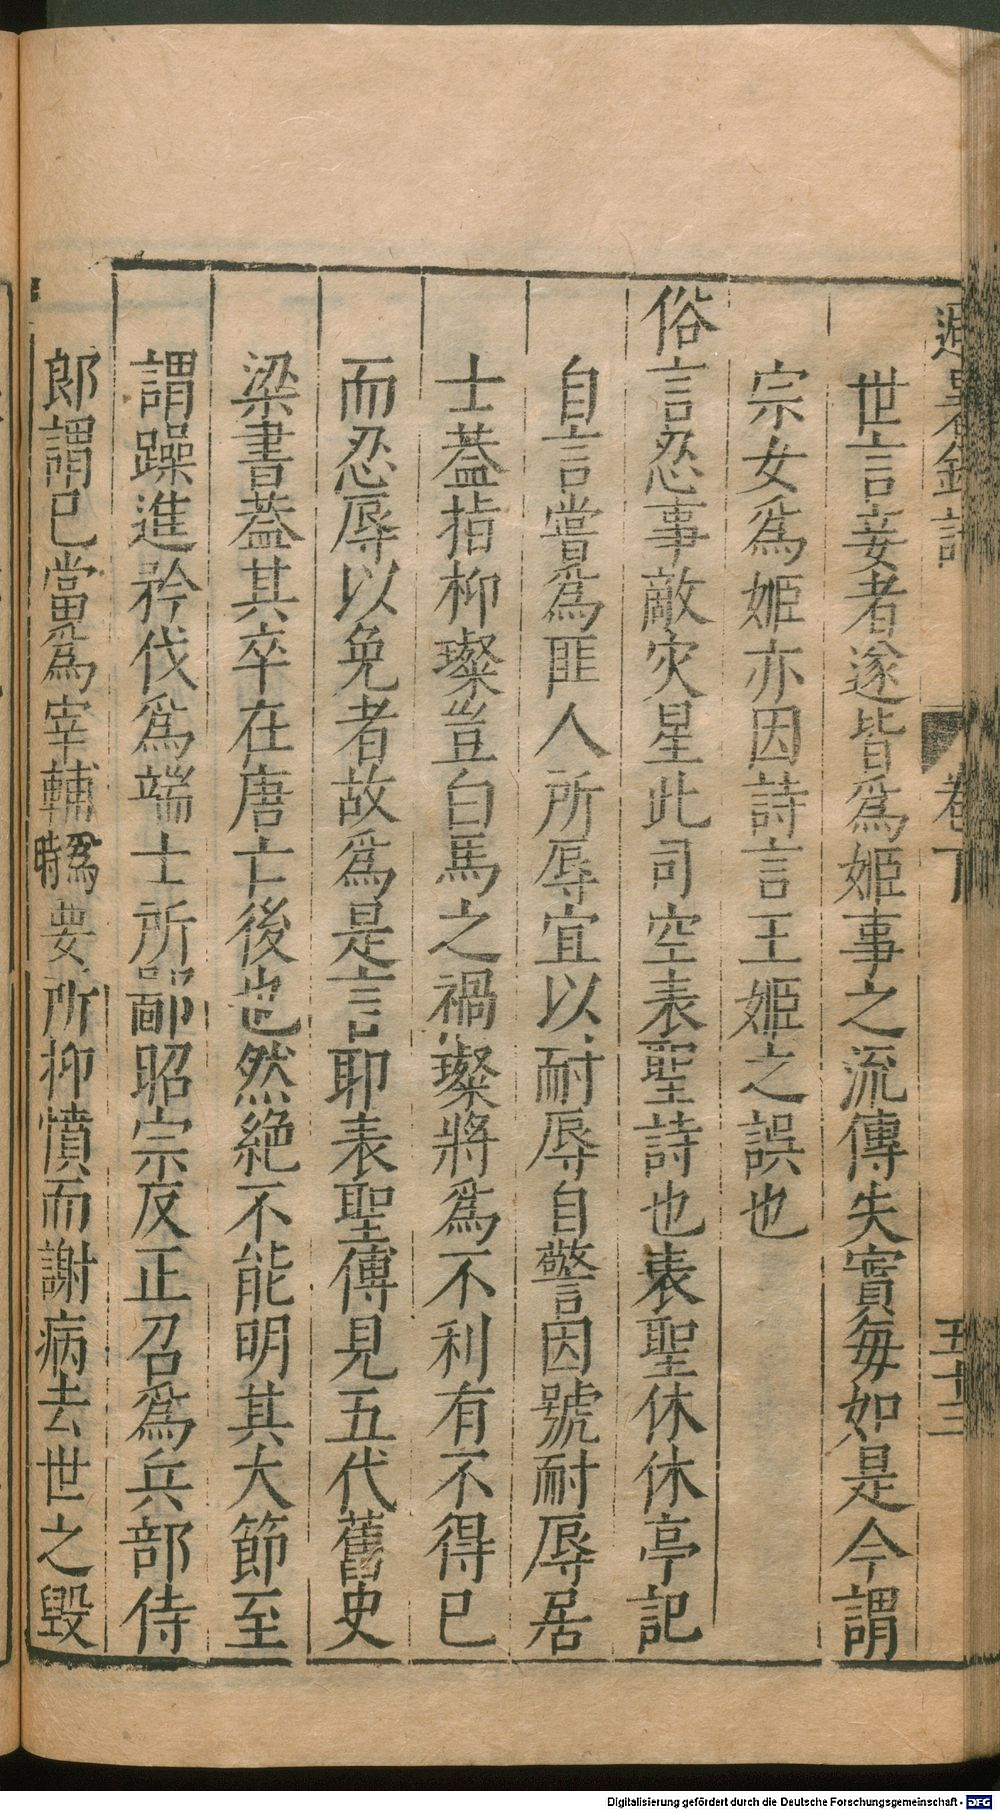 避暑錄話 卷下 五十三
世言妾者遂皆爲姬事之流傳失實每如是今謂
宗女爲姬亦因詩言王姬之誤也
俗言忍事敵灾星此司空表聖詩也表聖休休亭記
自言嘗爲匪人所辱宜以耐辱自警因號耐辱居
士葢指柳璨豈白馬之禍璨將爲不利有不得已
而忍辱以免者故爲是言耶表聖傳見五代舊史
梁書葢其卒在唐亡後也然絕不能明其大節至
謂躁進矜伐爲端士所鄙昭宗反正召爲兵部侍
郎謂已當爲宰輔爲時要所抑憤而謝病去世之毀
Digitalisierung gefördert durch die Deutsche Forschungsgemeinschaft - DFG